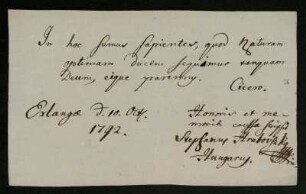 In hoc sumus sapientes, quod Naturam
optimam ducem sequimur tanquam
Deum, eique paremus.
Cicero.
Erlangæ d. 10. Oct.
1792.
Honoris et me-
moriæ causa scripsit
Stephanus
Hungarus